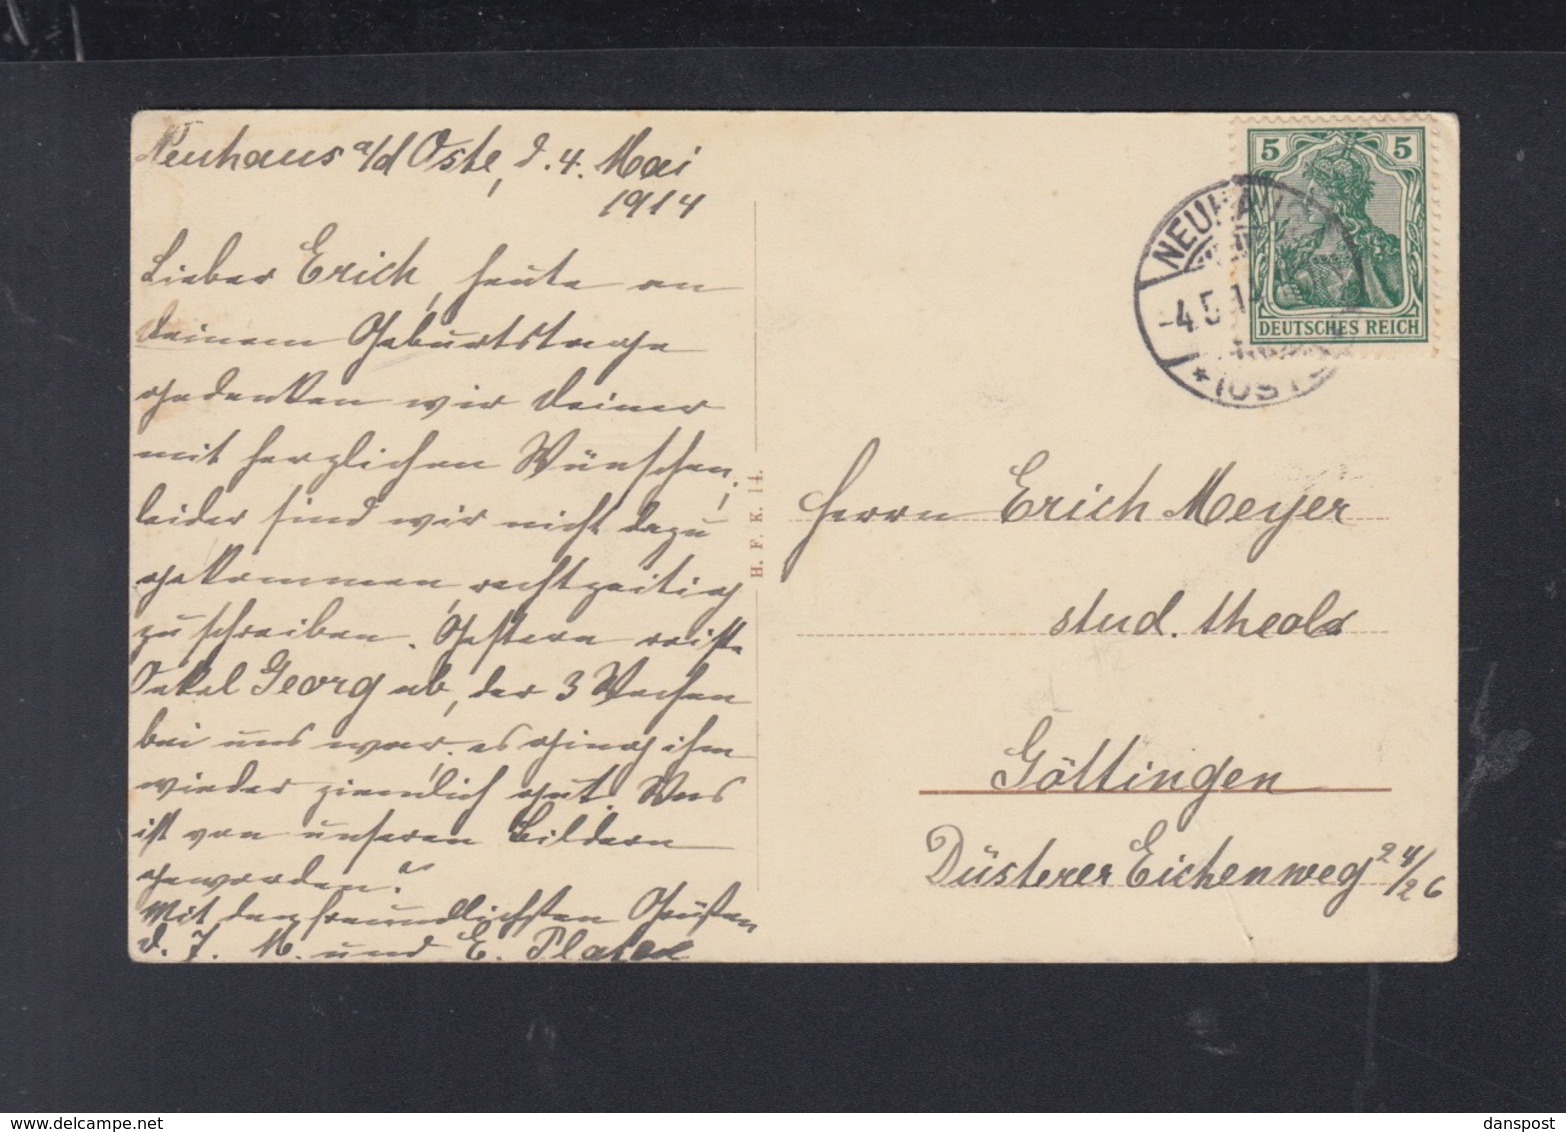 Neuhaus a/d Oste, d. 4. Mai
1914
Lieber Erich, heute an
Deinem Geburtstage
gedenken wir Deiner
mit herzlichen Wünschen,
leider sind wir nicht dazu
gekommen, rechtzeitig
zu schreiben. Gestern reiste
Onkel Georg ab, der 3 Wochen
bei uns war. es ging ihm
wieder ziemlich gut. Was
ist von unseren Bildern
geworden?
Mit den freundlichsten Grüßen
d. J. M. und E.
H. F. K. 14.
5 5
DEUTSCHES REICH
NEUHAUS
-4.5.14
* (OSTE)
Herrn Erich Meyer
stud. theol.
Göttingen
Düsterer Eichenweg 24/26
danspost